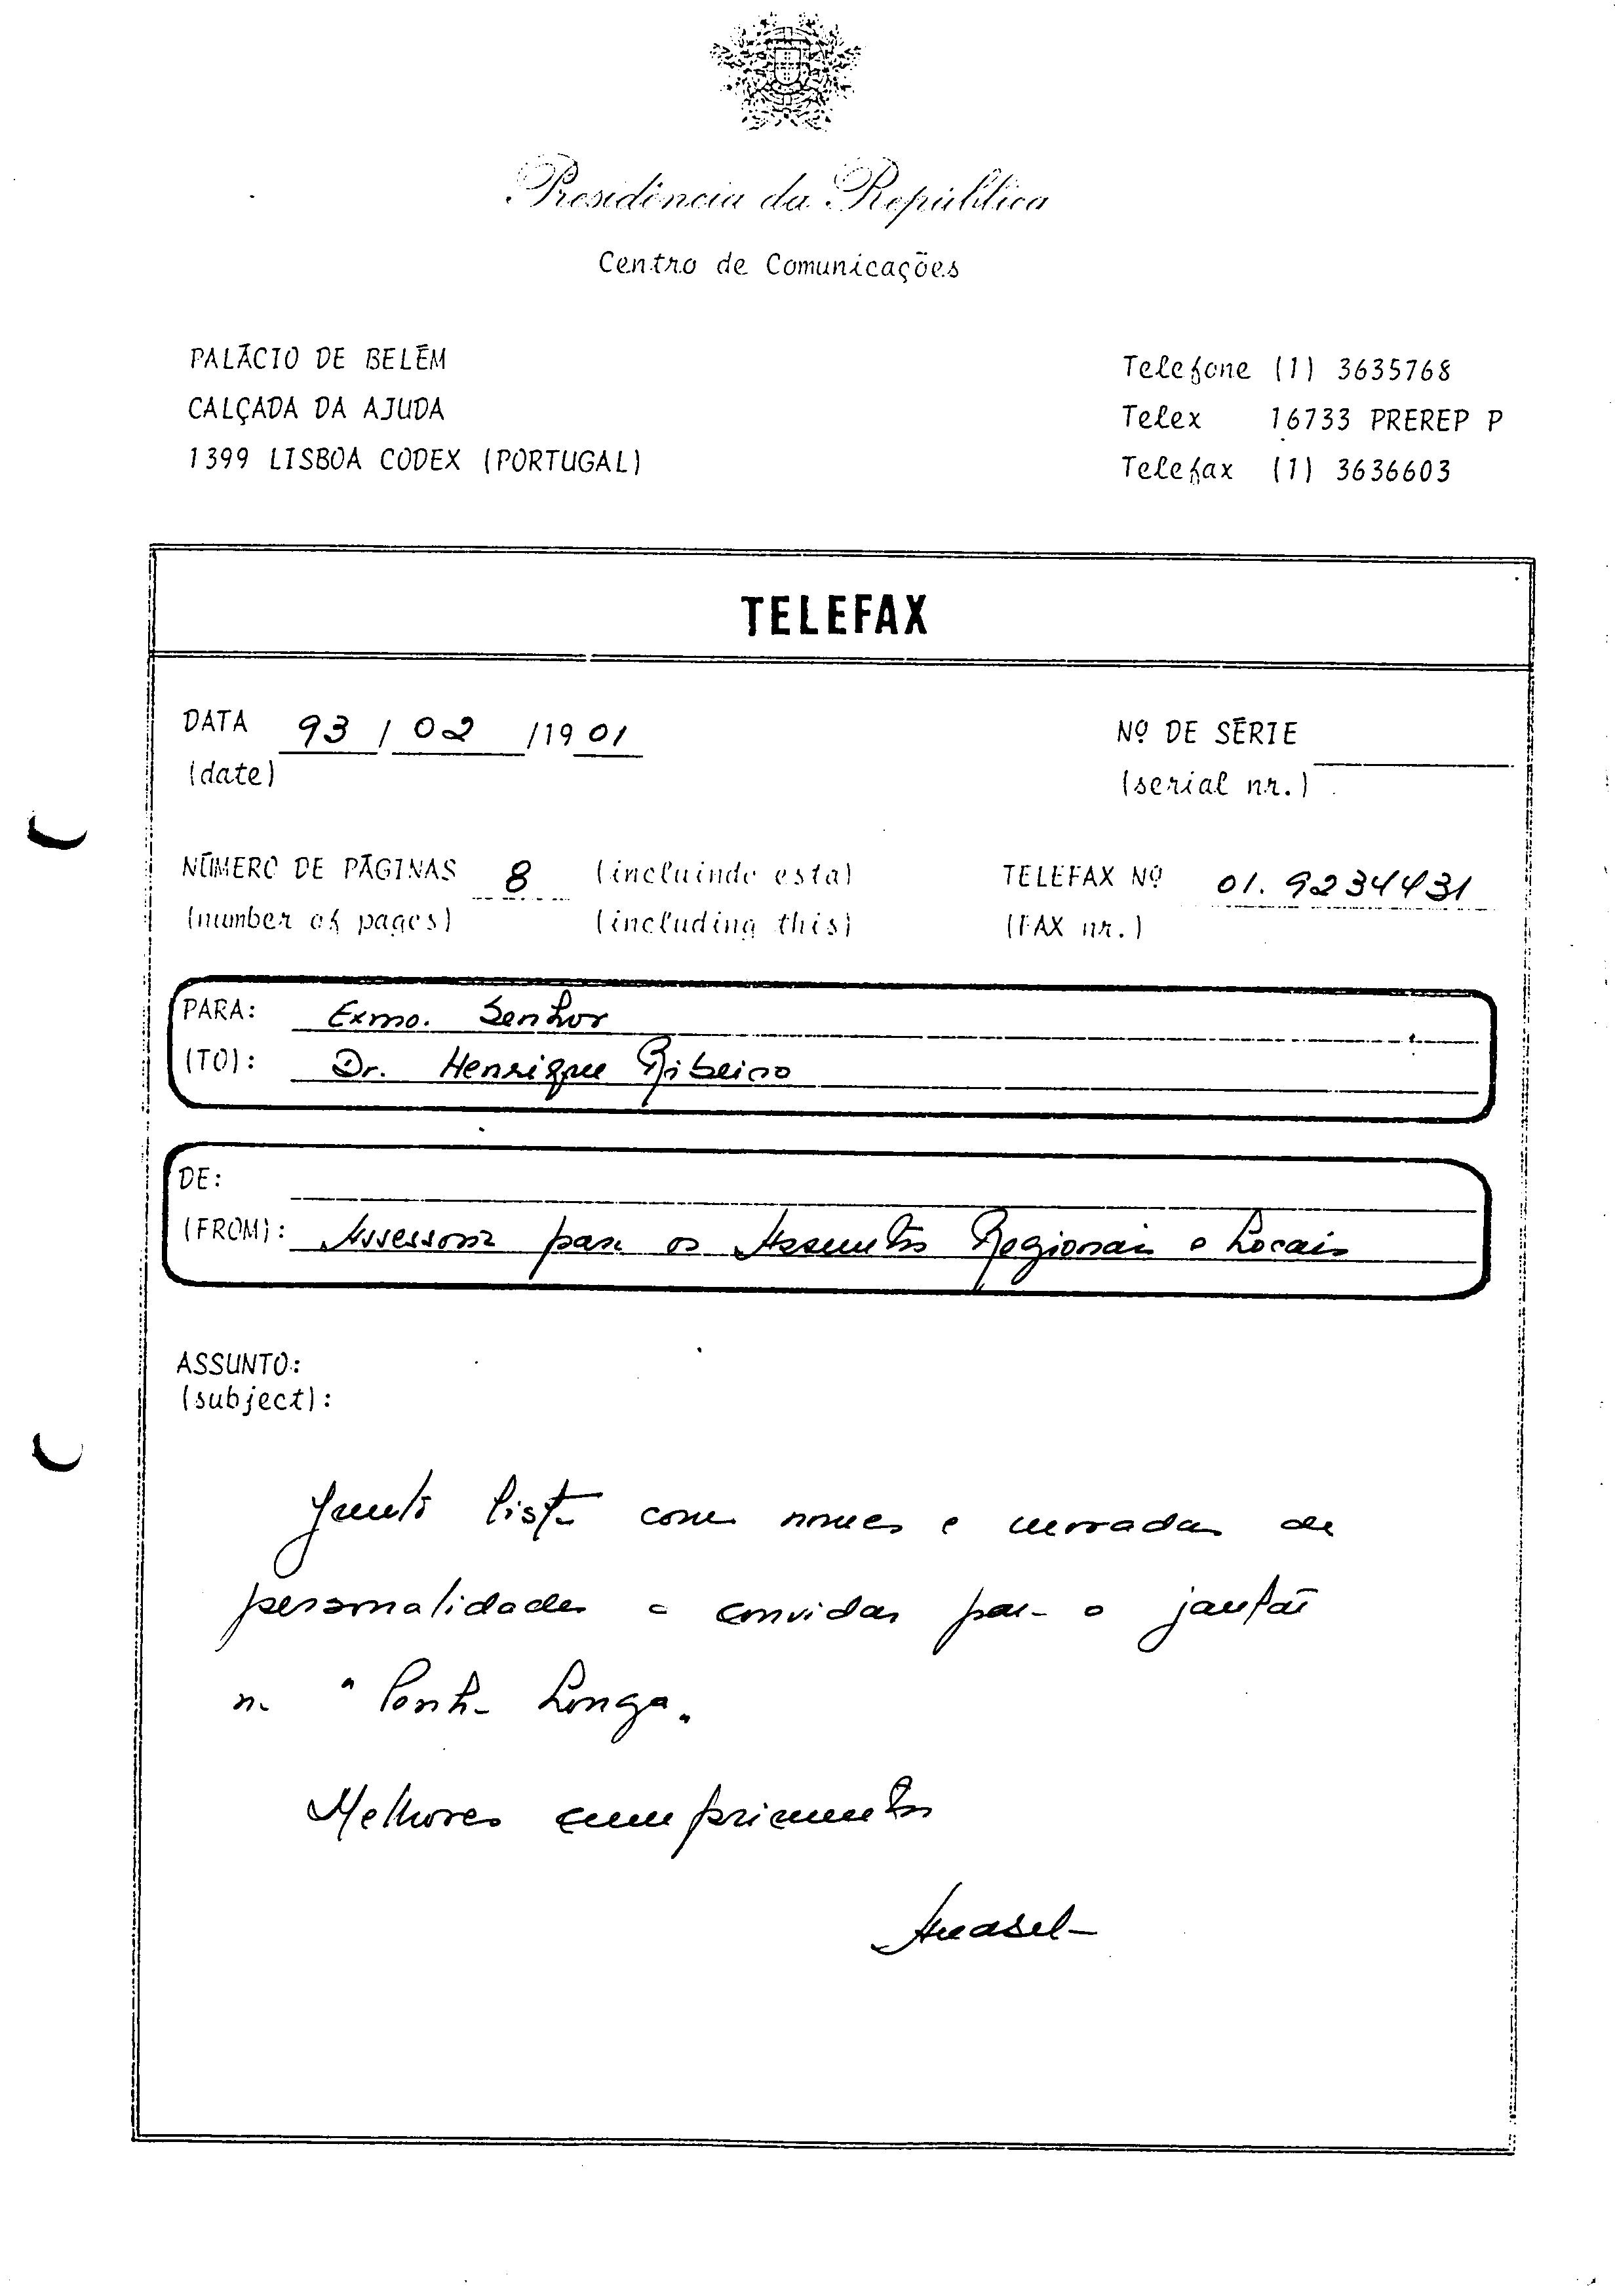 Presidência da República
Centro de Comunicações
PALÁCIO DE BELÉM
CALÇADA DA AJUDA
1399 LISBOA CODEX (PORTUGAL)
Telefone (1) 3635768
Telex 16733 PREREP P
Telefax (1) 3636603
TELEFAX
DATA 93 / 02 /19 01
(date)
Nº DE SÉRIE
(serial nr.)
NÚMERO DE PÁGINAS 8 (incluindo esta)
(number of pages) (including this)
TELEFAX Nº 01. 9234431
(FAX nr.)
PARA: Exmo. Senhor
(TO): Dr. Henrique Ribeiro
DE:
(FROM): Assessoria para os Assuntos Regionais e Locais
ASSUNTO:
(subject):
Junto lista com nomes e moradas de
personalidades a convidar para o jantar
na "Penha Longa"
Melhores cumprimentos